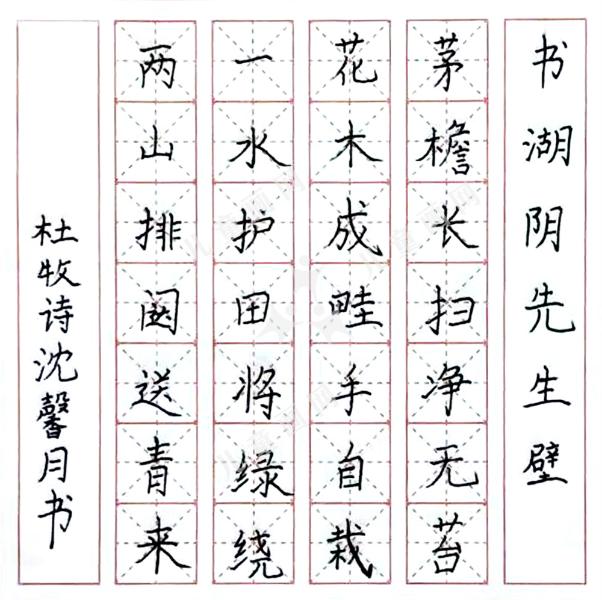 书湖阴先生壁
茅檐长扫净无苔
花木成畦手自栽
一水护田将绿绕
两山排闼送青来
杜牧诗沈馨月书